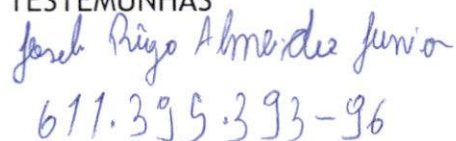 TESTEMUNHAS
José Almeida Junior
611.395.393-96